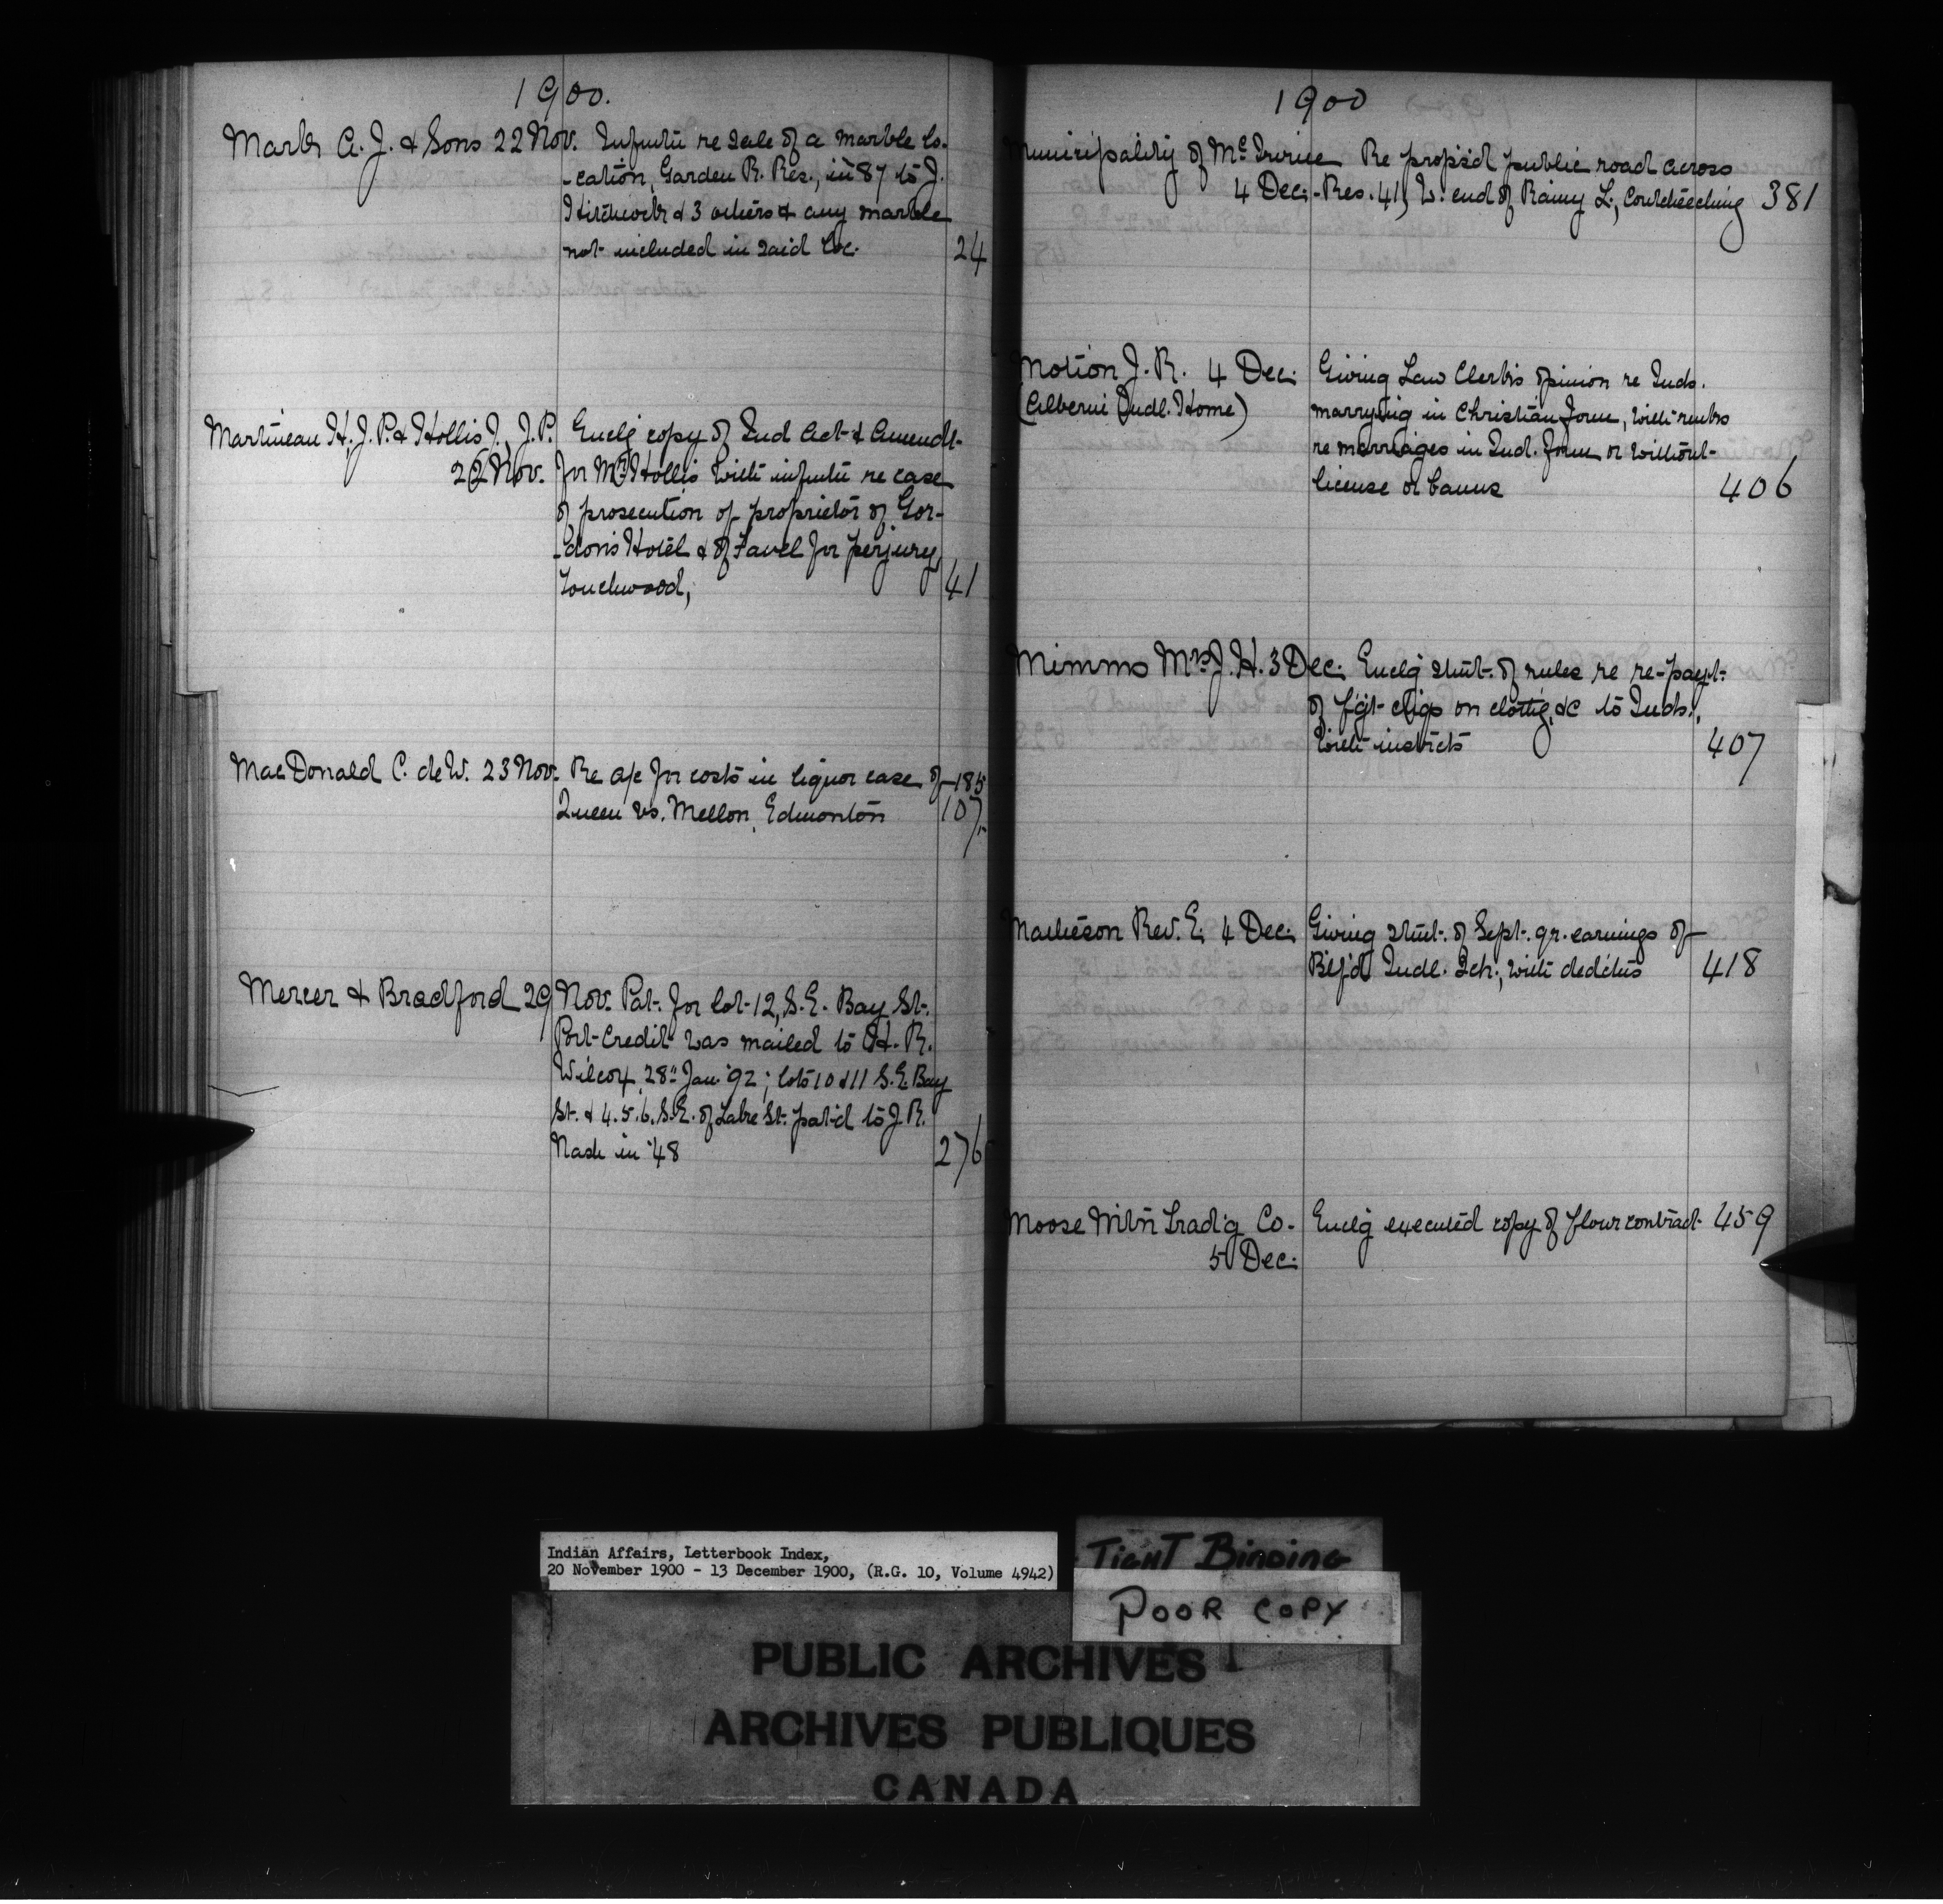 1900.
Marks A. J. & Sons 22 Nov. Infmtn re sale of a marble lo-
-cation, Garden R. Res., in 87 to J.
& 3 others & any marble
not included in said loc. 24
Martineau H, J. P. & Hollis J., J.P. Enclg copy of Ind Act & Amendt
22 Nov. for Mr Hollis with infmtn re case
of prosecution of proprietor of Gor-
-don's Hotel & of Favel for perjury
Touchwood, 41
MacDonald C. de W. 23 Nov. Re a/c for costs in liquor case of 185
Queen vs. Mellon, Edmonton 107
Mercer & Bradford 29 Nov. Pat. for lot 12, S.E. Bay St.
Port Credit was mailed to H. R.
Wilcox, 28" Jan '92; lots 10 & 11 S.E. Bay
St. & 4. 5. 6. S.E. of Lake St. pat'd to J. R.
Nash in '48 276
1900
Municipality of McIrvine Re propsd public road across
4 Dec. Res. 41, W. end of Rainy L., Coutcheeching 381
Motion J. R. 4 Dec. Giving Law Clerk's opinion re Inds.
(Alberni Indl. Home) marrying in Christian form, with rmks
re marriages in Ind. form or without
license or banns 406
Mimms Mrs J. H. 3 Dec. Enclg stmt. of rules re re-payt.
of fgt chgs on clothg, &c to Inds.,
with instrcts 407
Matheson Rev. E. 4 Dec. Giving stmt. of Sept. qr. earnings of
Btlf'd Indl. Sch., with dedctns 418
Moose Mtn Tradg Co. Enclg executed copy of flour contract 459
5 Dec.
Indian Affairs, Letterbook Index,
20 November 1900 - 13 December 1900, (R.G. 10, Volume 4942)
TIGHT BINDING
POOR COPY
PUBLIC ARCHIVES
ARCHIVES PUBLIQUES
CANADA